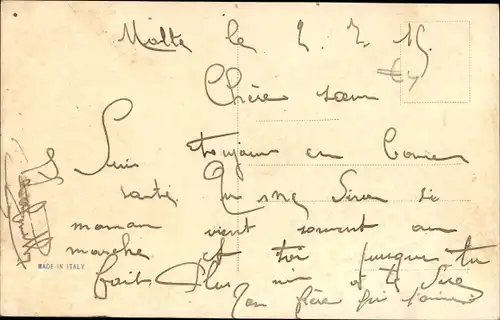 Malte le 2. 7. 19.
€4
Chère sœur
Suis toujours en bonne
santé. Tu me diras si
maman vient souvent au
marché et toi puisque tu
fais Plus rien à te dire
Ton frère qui t'aime
MADE IN ITALY